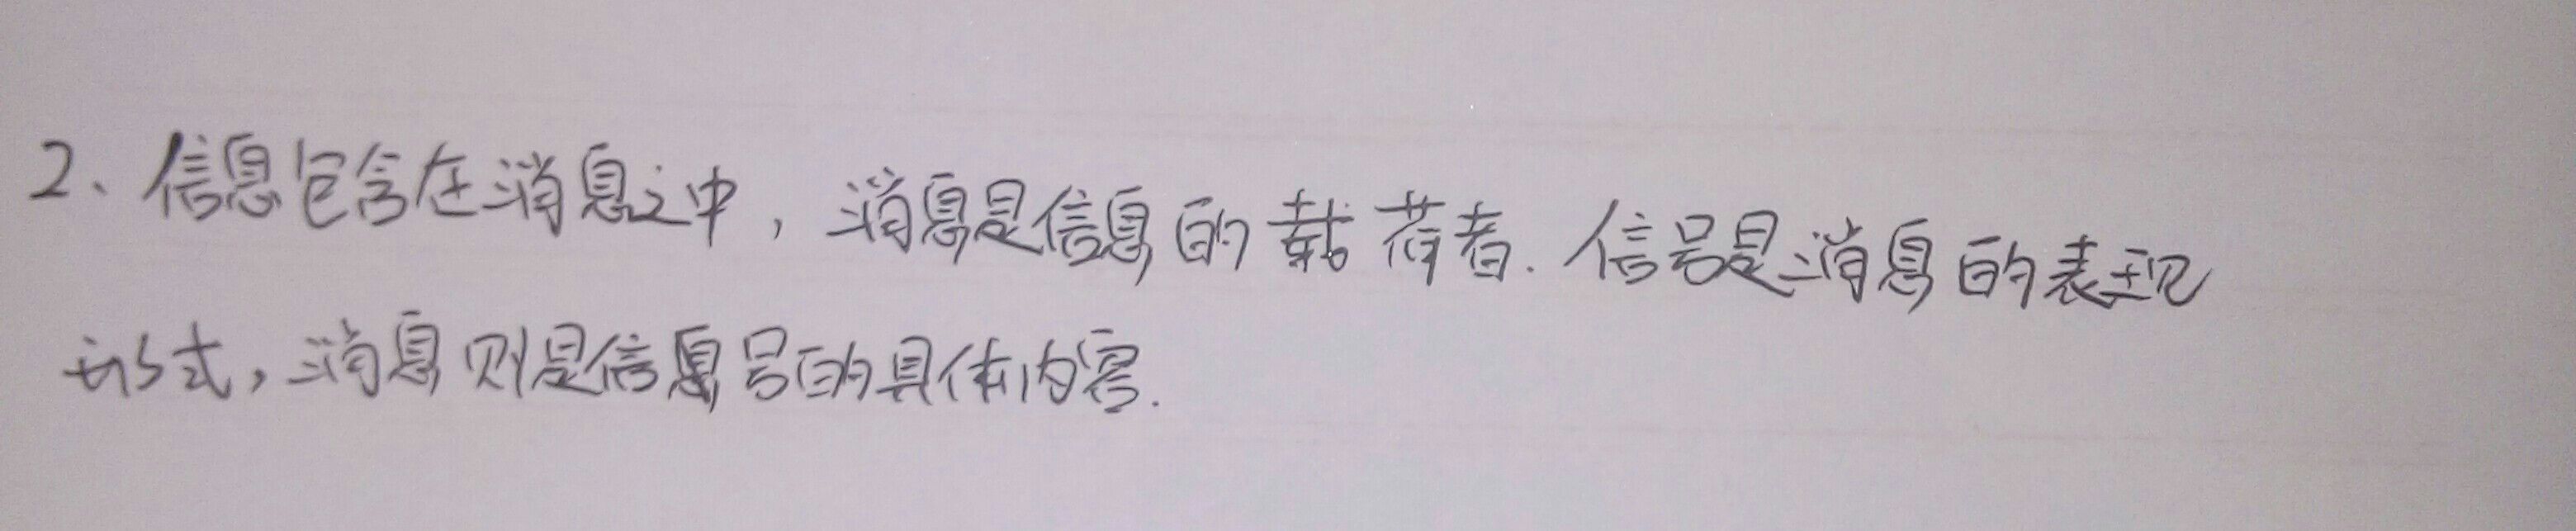 2、信息包含在消息之中，消息是信息的载荷者.信号是消息的表现
形式，消息则是信号的具体内容.